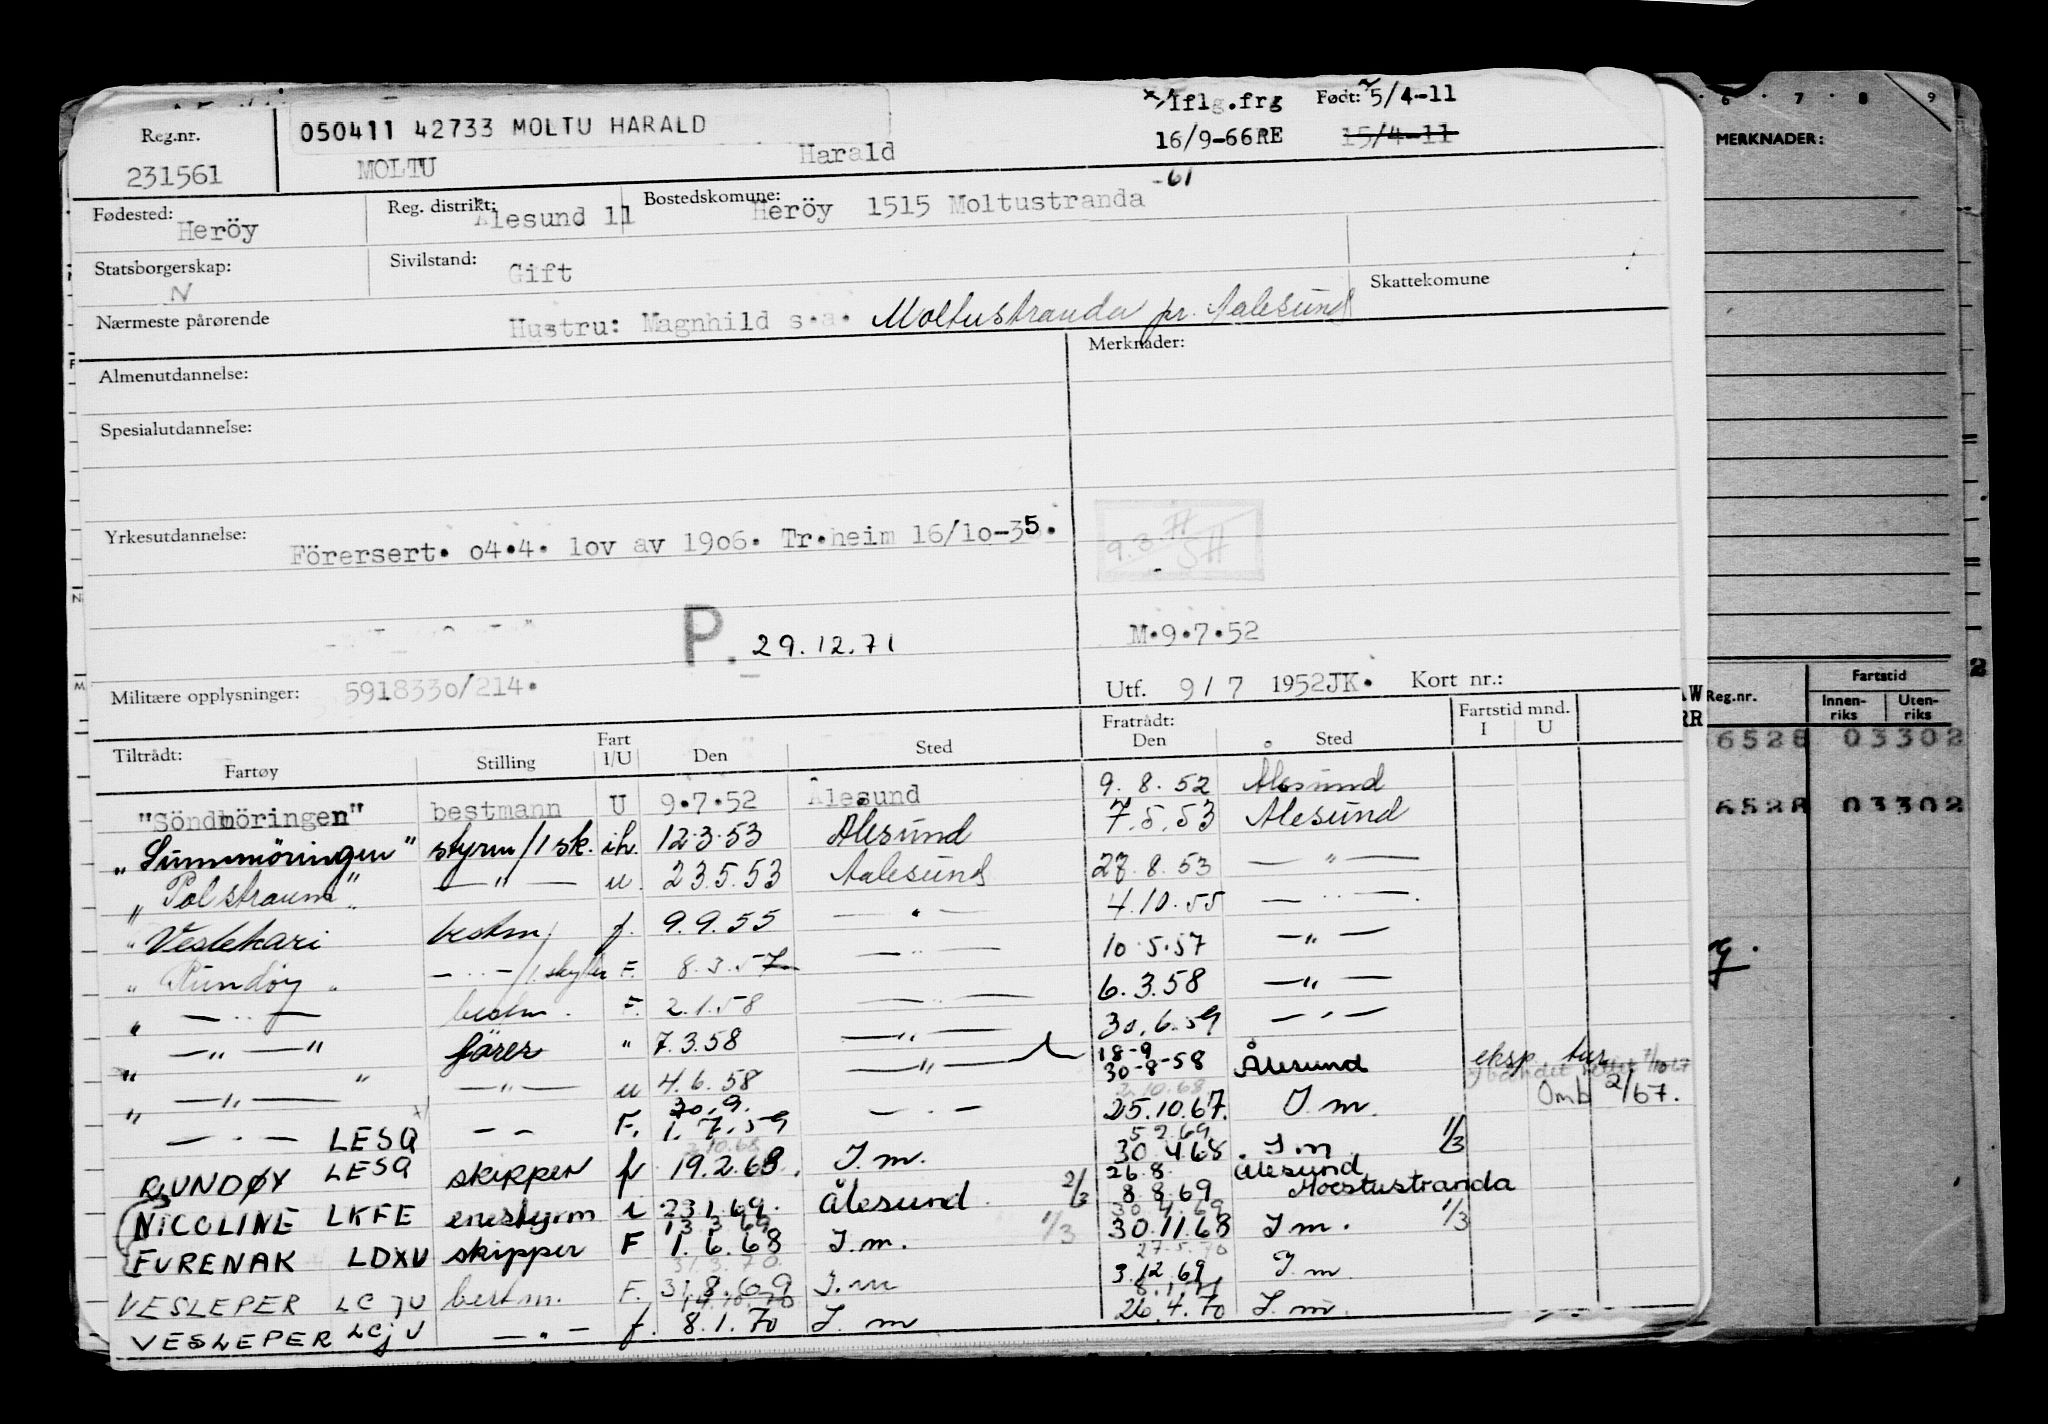 Reg.nr. 050411 42733 MOLTU HARALD x/Iflg.frg Født: 5/4-11
231561 MOLTU Harald 16/9-66RE 15/4-11
Fødested: Heröy Reg. distrikt: Ålesund 11 Bostedskomune: Heröy 1515 Moltustranda -61
Statsborgerskap: N Sivilstand: Gift Skattekomune
Nærmeste pårørende Hustru: Magnhild s.a. Moltustranda pr. Aalesund
Almenutdannelse: Merknader:
Spesialutdannelse:
Yrkesutdannelse: Förersert. o4.4. lov av 1906. Tr.heim 16/10-35.
P. 29.12.71 M.9.7.52
Militære opplysninger: 5918330/214. Utf. 9/7 1952JK. Kort nr.:
Tiltrådt: Fratrådt: Fartstid mnd.
Fartøy Stilling Fart I/U Den Sted Den Sted I U
"Söndmöringen" bestmann U 9.7.52 Ålesund 9.8.52 Alesund
"Sunnmöringen" styrm/1 sk. ih. 12.3.53 Alesund 7.5.53 Alesund
"Polstraum" — " — u. 23.5.53 Aalesund 27.8.53 — " —
"Veslekari bestm/ f. 9.9.55 — " — 4.10.55 — " —
"Rundøy" — " —/1. skytter F. 8.3.57 — " — 10.5.57 — " —
" — " — bestm. F. 2.1.58 — " — 6.3.58 — " —
" — " — " förer " 7.3.58 — " — 30.6.59 — " —
" — " — " — " — u 4.6.58 — " — 18-9 30-8-58 Ålesund eksp. tur
— " — LESQ — — F. 30.9. 1.7.59 — " — 25.10.67. I.m. Omb 2/67.
RUNDØY LESQ skipper f 19.2.68. I.m. 30.4.68. I.m 1/3
NICOLINE LKFE enestyrm i 23.1.69. Ålesund 2/3 26.8. 8.8.69 Ålesund Moltustranda
FURENAK LDXU skipper F 13.3.69 1.6.68 I.m. 1/3 30.4.69 30.11.68 I.m. 1/3
VESLEPER LCJU bestm. F. 31.3.70 31.8.69 I.m 27.5.70 3.12.69 I.m
VESLEPER LCJU — " — f. 8.1.70 I.m 26.4.70 I.m.
6 7 8 9
MERKNADER:
Reg.nr. Fartstid
Innen-riks Uten-riks
6528 03302
6528 03302
2